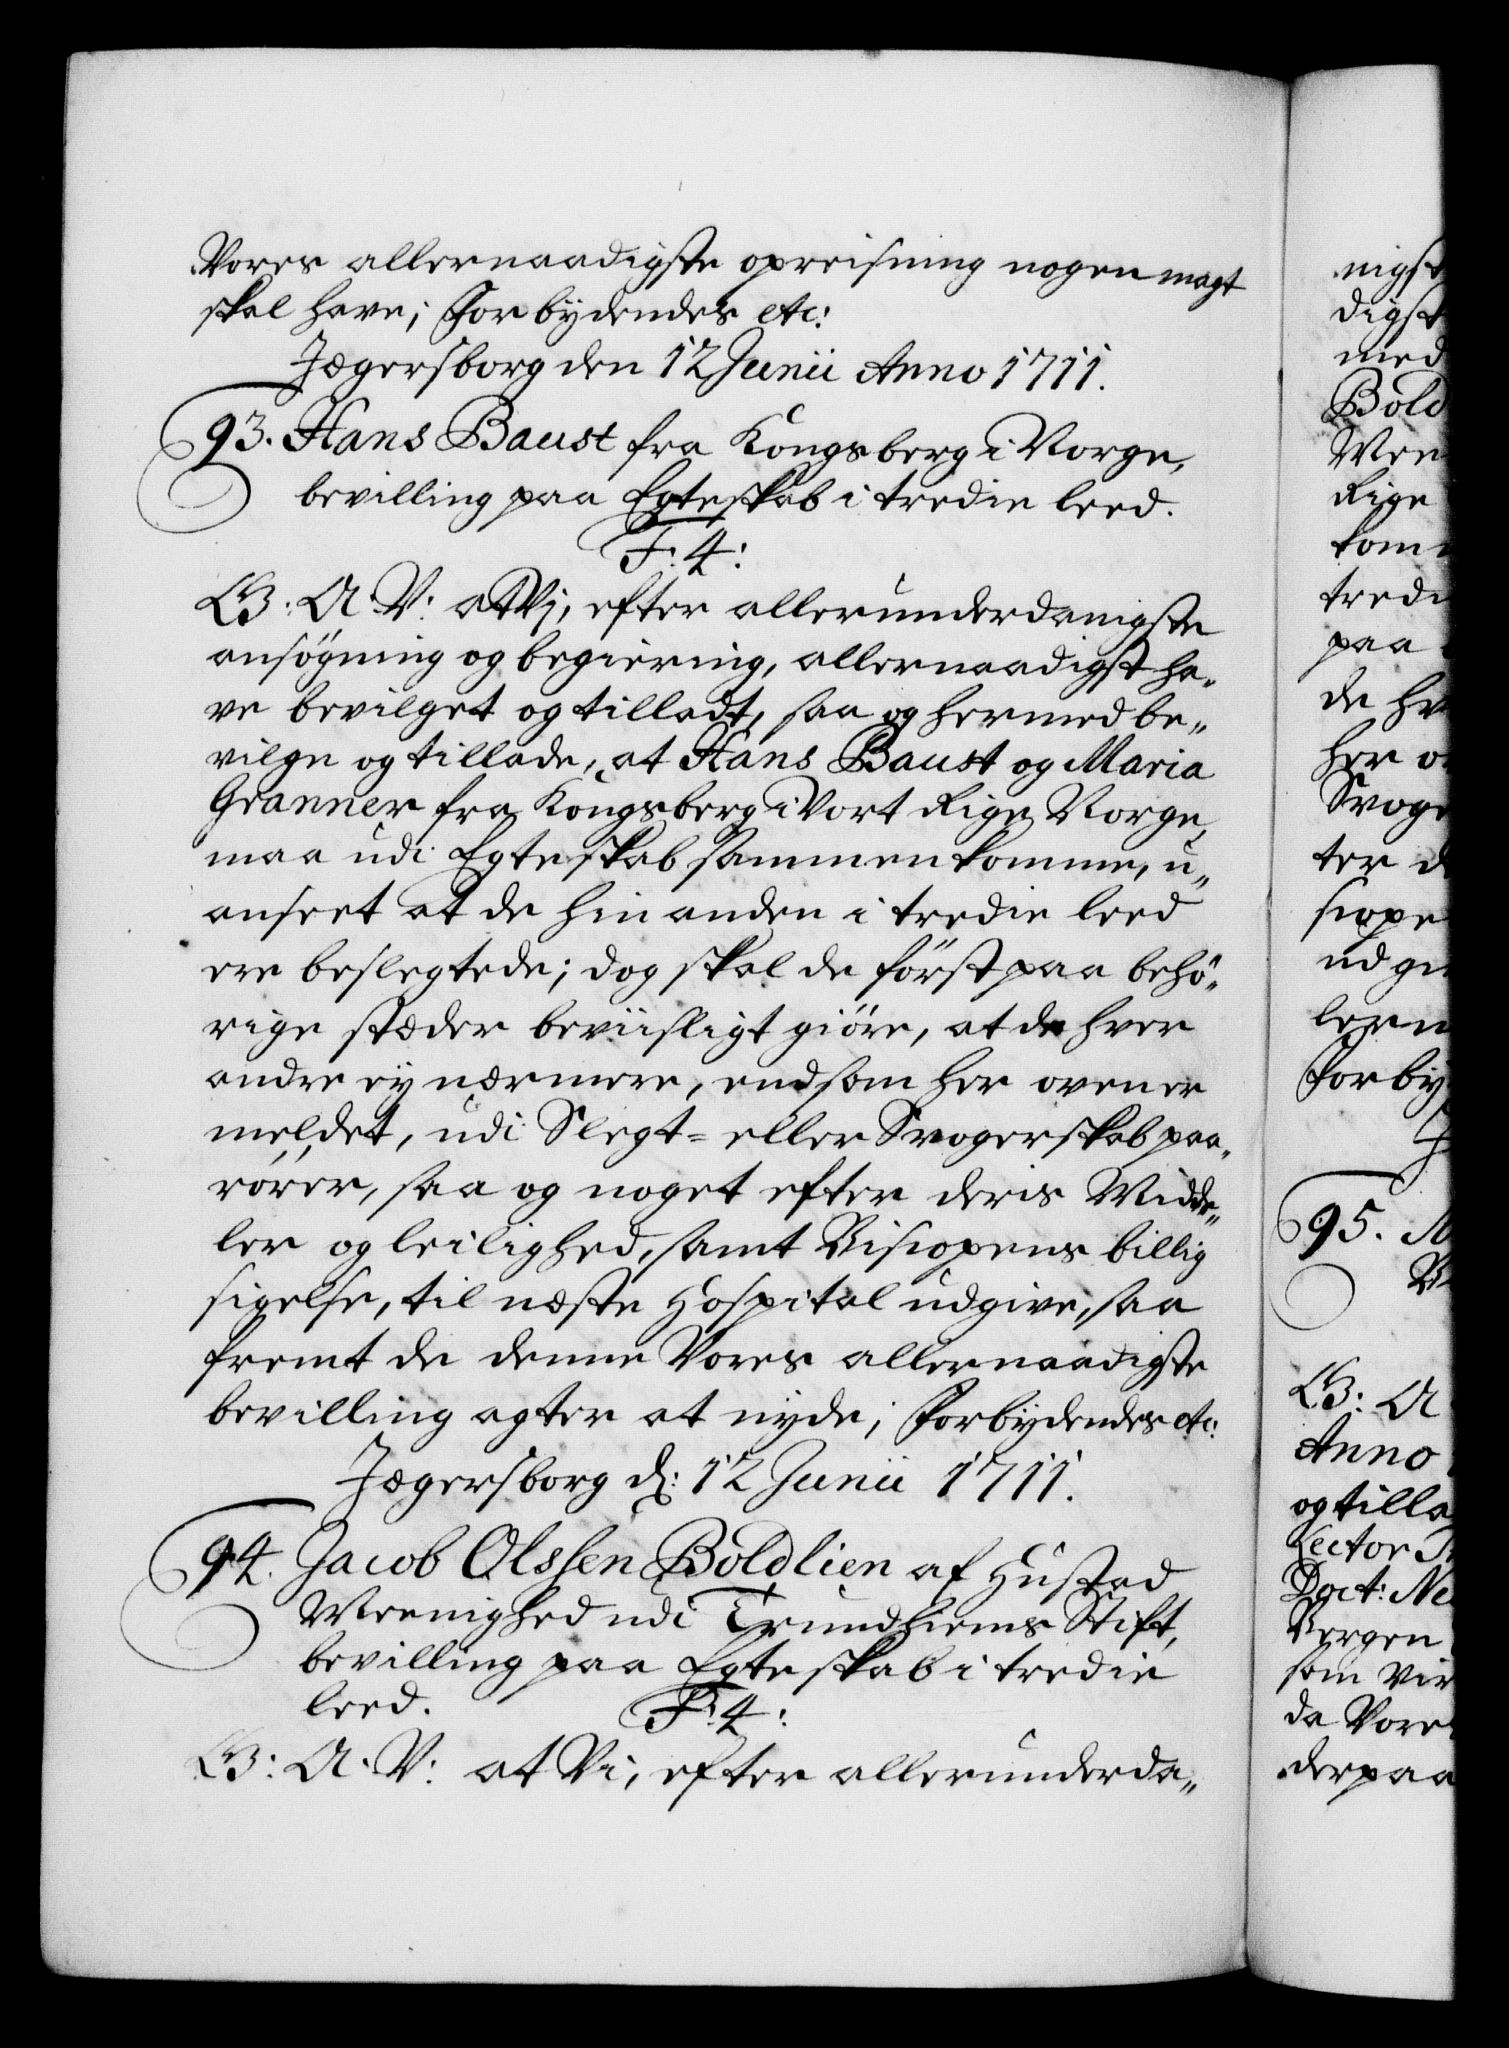 Vores allernaadigste opreisning nogen magt
skal have; Forbydendes etc:
Jægersborg den 12 Junii Anno 1711.
93. Hans Baust fra Kongsberg i Norge,
bevilling paa Egteskab i tredie leed.
F: 4:
G: A. V: at Vi, efter allerunderdanigste
ansøgning og begiering, allernaadigst ha„
ve bevilget og tilladt, saa og hermed be„
vilge og tillade, at Hans Baust og Maria
Granner fra Kongsberg i Vort Rige Norge,
maa udi Egteskab sammenkomme, u„
anseet at de hinanden i tredie leed
ere beslegtede; dog skal de först paa behö„
rige stæder beviisligt giöre, at de hver
andre ey nærmere, end som her oven er
meldet, udi Slegt- eller Svogerskab paa„
rörer, saa og noget efter deris Midde„
ler og leilighed, samt Biscopens billig
sigelse, til næste Hospital udgive, saa
fremt de denne Vores allernaadigste
bevilling agter at nyde; Forbydendes etc:
Jægersborg d: 12 Junii 1711.
94. Jacob Olssen Boldlien af Hustad
Meenighed udi Trundhiems Stift,
bevilling paa Egteskab i tredie
leed. F: 4:
G: A. V: at Vi, efter allerunderda„
nigst
digst
med
Bold
Mee
Rige
kom
tredi
paa
de hv
her o
Svoge
ter d
udgi
lern
Forby
95.
G: A
Anno
og tilla
Lector
Doct: Ne
Bergen
som Vi
da Vore
derpaa